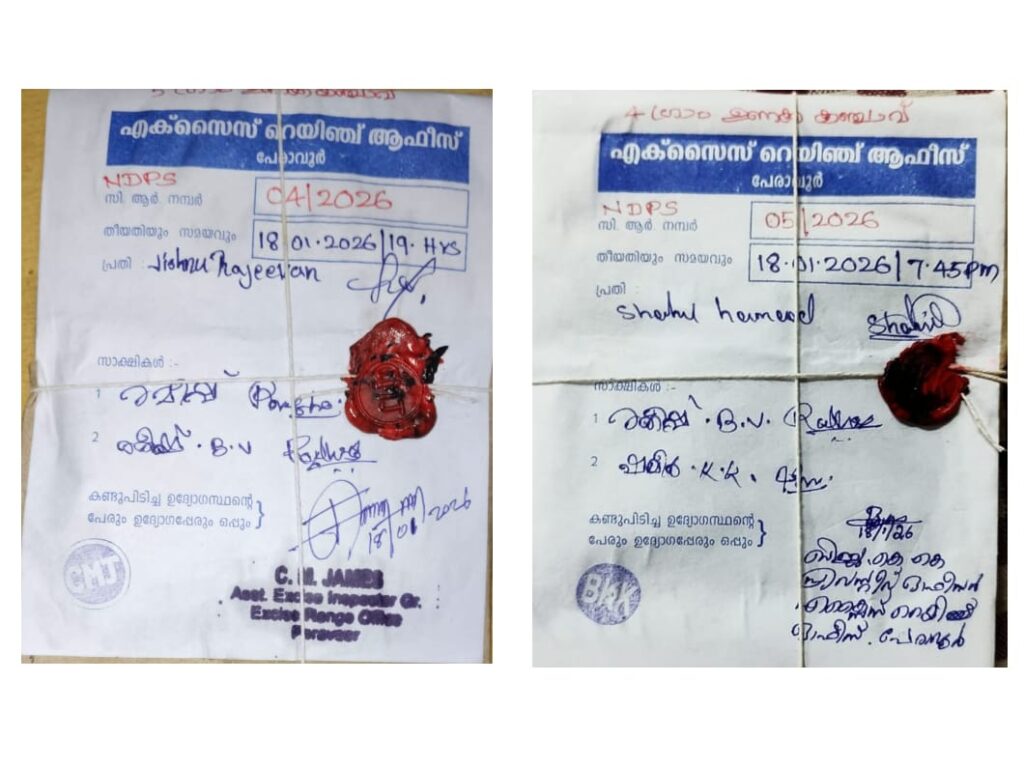 5 ഗ്രാം ഉണക്ക കഞ്ചാവ്
എക്സൈസ് റെയിഞ്ച് ആഫീസ്
പേരാവൂർ
NDPS
സി. ആർ. നമ്പർ
04/2026
തീയതിയും സമയവും
18.01.2026/19. Hrs
പ്രതി :
Jishnu Rajeevan
സാക്ഷികൾ :-
1
2
B.V
കണ്ടുപിടിച്ച ഉദ്യോഗസ്ഥന്റെ
പേരും ഉദ്യോഗപ്പേരും ഒപ്പും
18/01/2026
CMJ
C. M. JAMES
Asst. Excise Inspector Gr.
Excise Range Office
Peravoor
4 ഗ്രാം ഉണക്ക കഞ്ചാവ്
എക്സൈസ് റെയിഞ്ച് ആഫീസ്
പേരാവൂർ
NDPS
സി. ആർ. നമ്പർ
05/2026
തീയതിയും സമയവും
18.01.2026/7.45pm
പ്രതി :
Shahul hameed
Shahul
സാക്ഷികൾ :-
1
B.V.
2
K.K.
കണ്ടുപിടിച്ച ഉദ്യോഗസ്ഥന്റെ
പേരും ഉദ്യോഗപ്പേരും ഒപ്പും
18/1/26
BKK
ബിജു. കെ. കെ
പ്രിവന്റീവ് ഓഫീസർ
എക്സൈസ് റെയിഞ്ച്
ഓഫീസ്. പേരാവൂർ